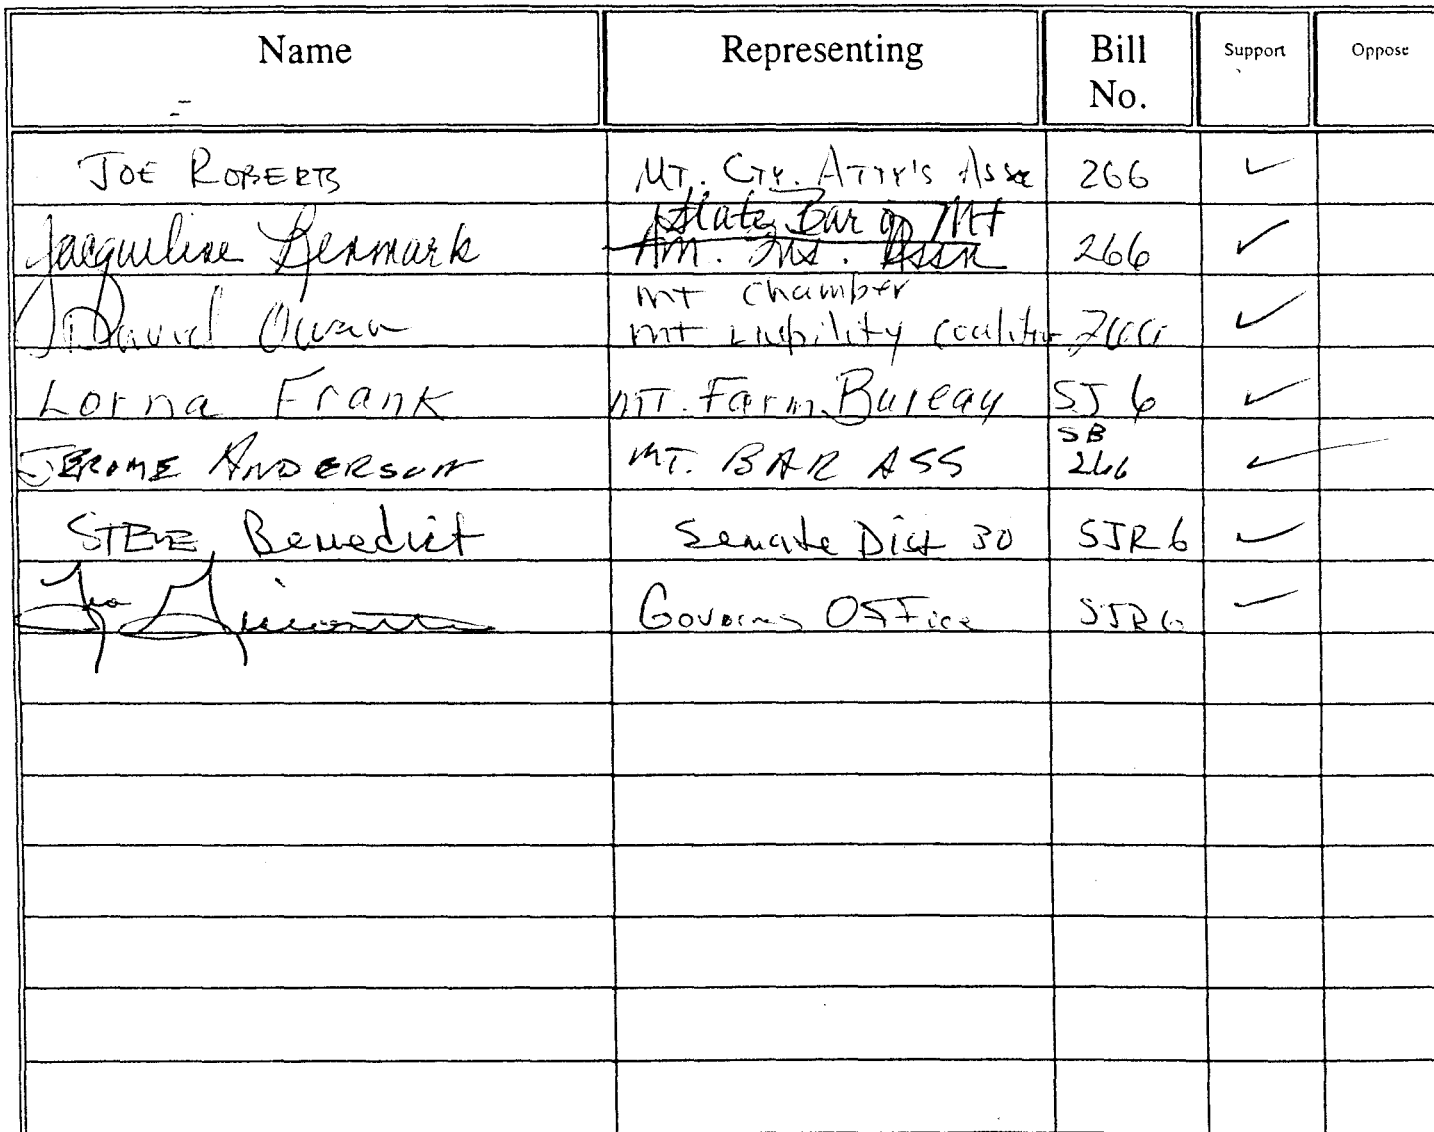 Name Representing Bill No. Support Oppose
JOE ROBERTS MT. CTY. ATTY'S Assn 266 ✓
State Bar of Mt
Jacqueline Lenmark Am. Ins. Assn 266 ✓
mt chamber
David Owen mt Liability coalition 266 ✓
Lorna Frank MT. Farm Bureau SJ 6 ✓
JEROME ANDERSON MT. BAR ASS SB 266 ✓
STEVE Benedict Senate Dist 30 SJR 6 ✓
Governors Office SJR 6 ✓